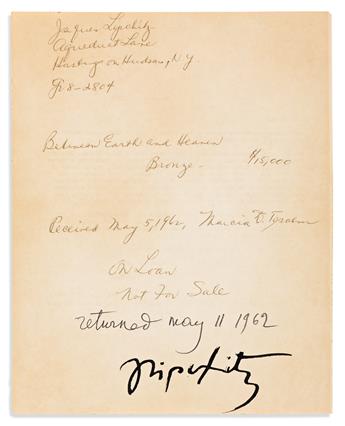 Jacques Lipchitz
Aqueduct Lane
Hastings on Hudson, N.Y.
Gr 8-2804
Between Earth and Heaven
Bronze - 15,000
Received May 5, 1962, Marcia D.
On Loan
Not For Sale
returned may 11 1962
Lipchitz